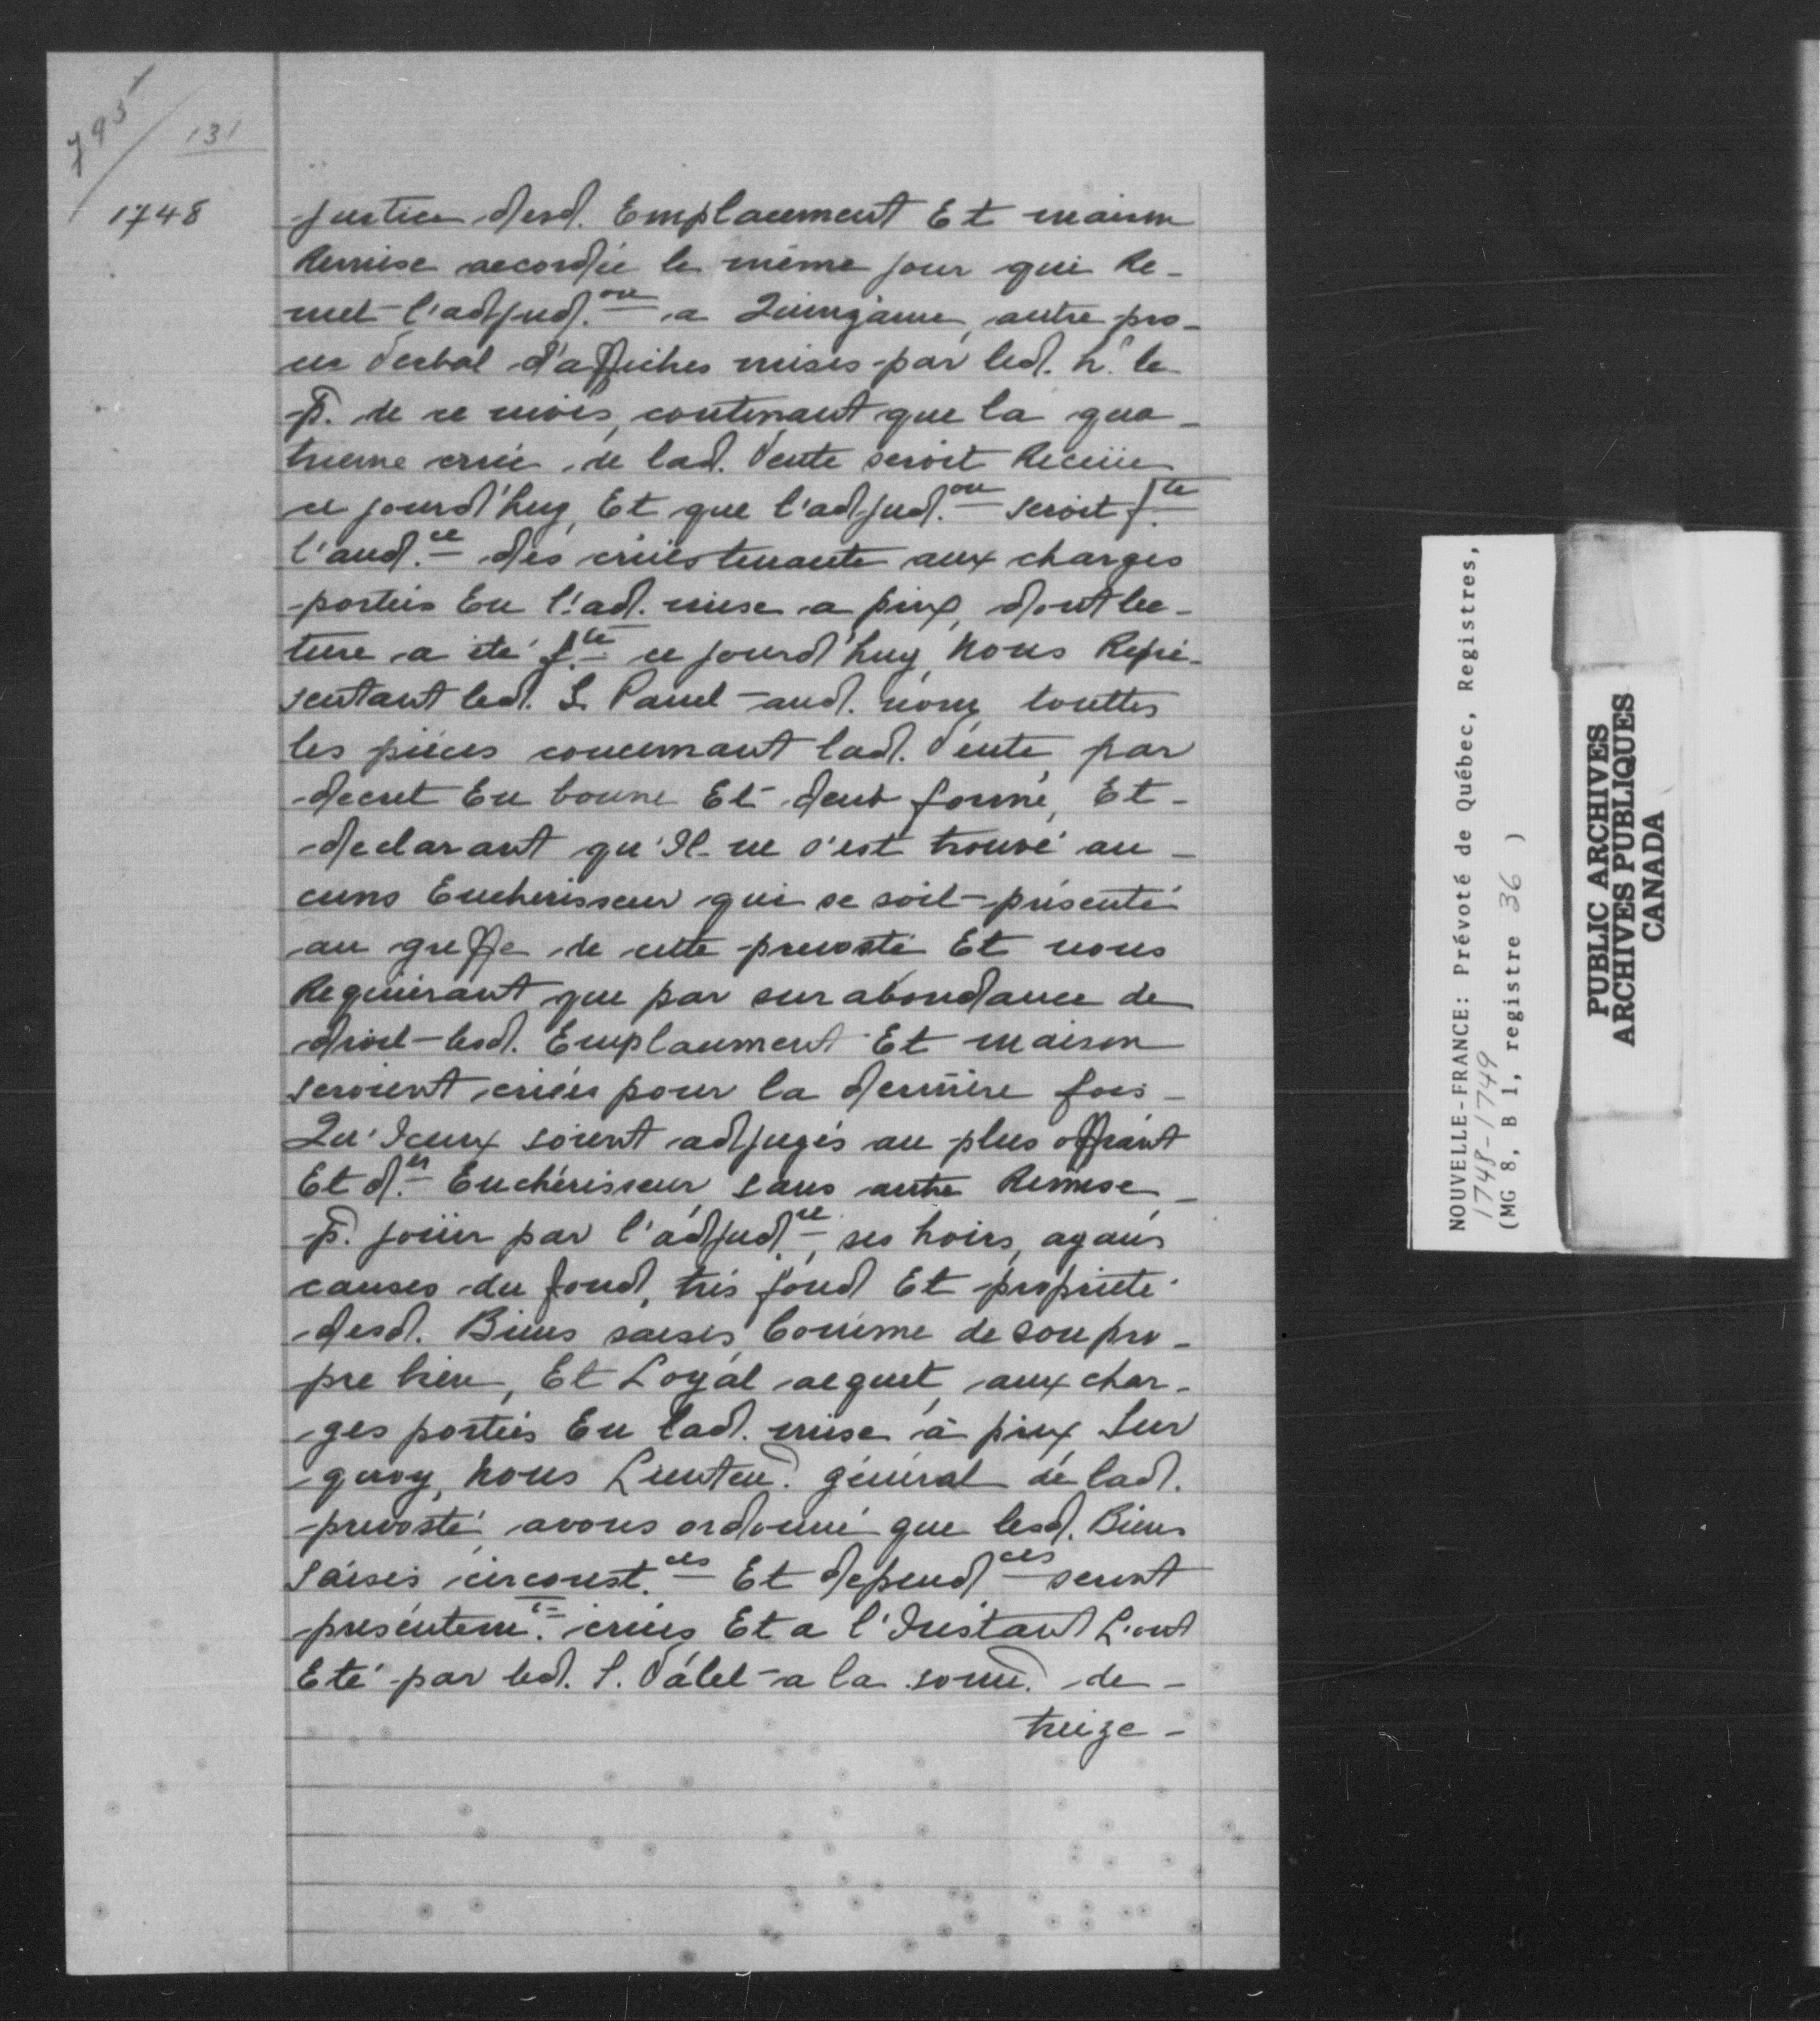 795
131
1748
justice desd. Emplacement Et maison
Remise accordée le même jour qui Re-
met l'adjud.on a Quinzaine, autre pro-
ces Verbal d'affiches mises par led. h.r le
p. de ce mois, contenant que la qua-
trieme criée de lad. Vente seroit Receüe
ce jourd'huy, Et que l'adjud.on seroit f.te
l'aud.ce des criées tenante aux charges
portées En l'ad. mise a prix, dont lec-
ture a été f.te ce jourd'huy, Nous Repre-
sentant led. S. Panet aud. nom, touttes
les pièces concernant lad. Vente par
decret En bonne Et deüe forme, Et
declarant qu'Il ne s'est trouvé au-
cuns Encherisseur qui se soit présenté
au greffe de cette prevosté Et nous
Requérant que par surabondance de
droit lesd. Emplacement Et maison
seroient criées pour la dernière fois
Qu'Iceux soient adjugés au plus offrant
Et d.er Enchérisseur sans autre Remise
p. joüir par l'adjud.re, ses hoirs, ayans
causes du fond, très fond Et propriété
desd. Biens saisis, Comme de son pro-
pre bien, Et Loyal acquet, aux char-
ges portées En lad. mise à prix Sur
quoy, Nous Lieuten. général de lad.
prevosté, avons ordonné que lesd. Biens
Saisis circonst.ces Et depend.ces seront
présentem.t criées Et a l'Instant L'ont
Eté par led. S. Valet a la som. de
treize
NOUVELLE-FRANCE: Prévoté de Québec, Registres,
1748-1749
(MG 8, B 1, registre 36 )
PUBLIC ARCHIVES
ARCHIVES PUBLIQUES
CANADA